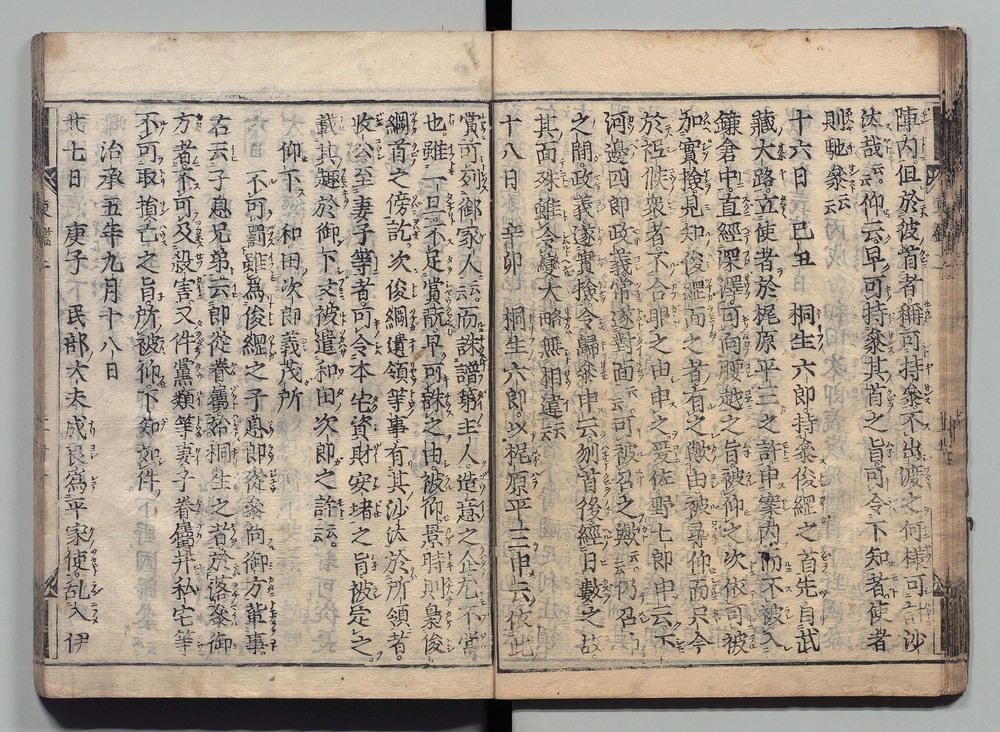 陣内但於彼首者稱可持參不出渡之何樣可計沙
汰哉云云仰云早可持參其首之旨可令下知者使者
則馳參云云
十六日己丑 桐生六郎持參俊綱之首先自武
藏大路立使者於梶原平三之許申案内而不被入
鎌倉中直經深澤可向腰越之旨被仰之次依可被
加實撿見知俊綱面之者有之歟由被尋仰而只今
於祗候衆者不合眼之由申之爰佐野七郎申云下
河邊四郎政義常遂對面云云可被召之歟云云仍召
之間政義遂實撿令歸參申云刎首後經日數之故
其面殊雖令變大略無相違云云
十八日 辛卯 桐生六郎以梶原平三申云依此
賞可列御家人云云而誅譜第主人造意之企尤不當
也雖一旦不足賞翫早可誅之由被仰景時則梟俊
綱首之傍訖次俊綱遺領等事有其沙汰於所領者
收公至妻子等者可令本宅資財安堵之旨被定之
載其趣於御下文被遣和田次郎之許云云
仰下 和田次郎義茂所
不可罰雖爲俊綱之子息郎從參向御方輩事
右云子息兄弟云郎從眷屬始桐生之者於落參御
方者不可及殺害又件黨類等妻子眷屬并私宅等
不可取損亡之旨所被仰下知如件
治承五年九月十八日
廿七日 庚子 民部大夫成良爲平家使乱入伊